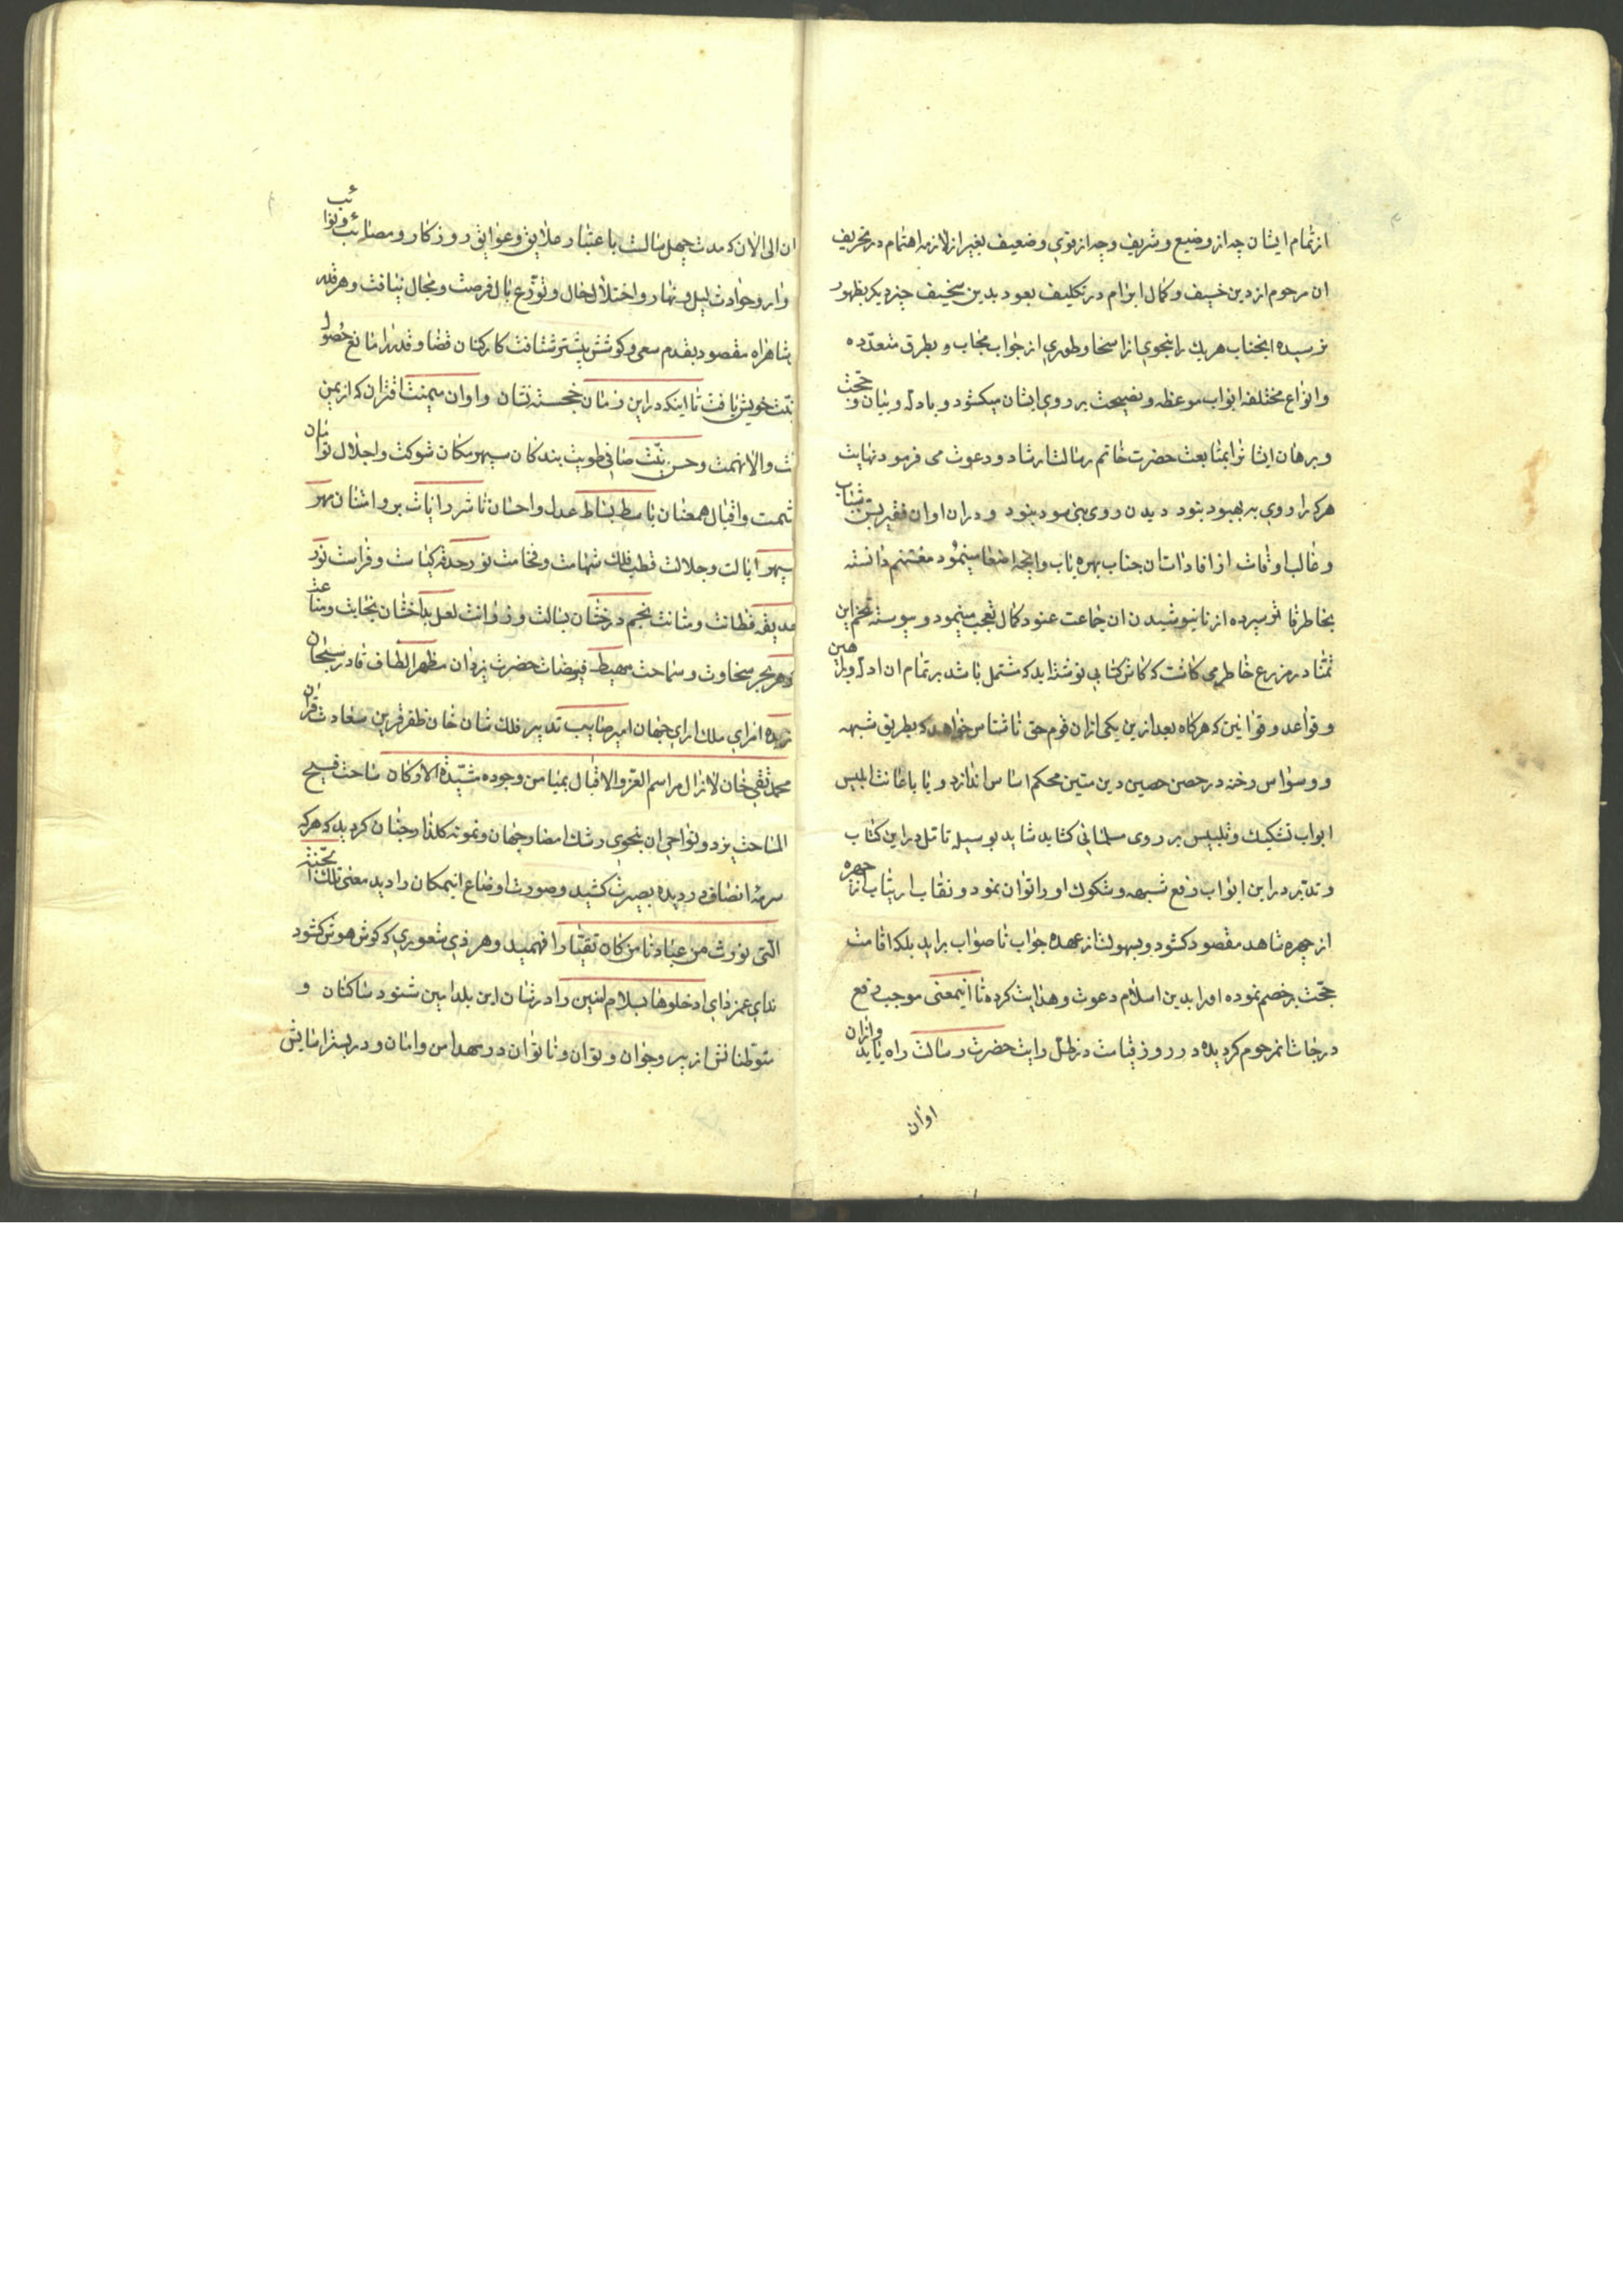 از تمام ایشان چه از وضیع و شریف و چه از قوی و ضعیف بغیر از لازمه اهتمام در تحریف
ان مرحوم از دین حنیف و کمال ابرام در تکلیف بعود بدین سخیف چیز دیکر بظهور
نرسیده انجناب هریك را بنحوی از انحا و طوری از جواب مجاب و بطرق متعدّده
و انواع مختلفه ابواب موعظه و نصیحت بر روی ایشان میکشود و بادله و بیان و حجّت
و برهان ایشانرا بمتابعت حضرت خاتم رسالت ارشاد و دعوت می فرمود نهایت
هرکه را روی به بهبود نبود دیدن روی نبی سود نبود و دران اوان فقیر بیبضاعت
و غالب اوقات از افادات ان جناب بهره یاب و انچه اصغا مینمود مغتنم دانسته
بخاطر فاتر سپرده از نانیوشیدن ان جماعت عنود کمال تعجب مینمود و پیوسته تخم این
تمنّا در مزرع خاطر می کاشت که کاش کتابی نوشته اید که مشتمل باشد بر تمام ان ادله و براهین
و قواعد و قوانین که هرکاه بعد ازین یکی ازان قوم حق ناشناس خواهد که بطریق شبهه
و وسواس رخنه در حصن حصین دین متین محکم اساس اندازد و یا باعانت ابلیس
ابواب تشکیك و تلبیس بر روی مسلمانی کشاید شاید بوسیله تامل دراین کتاب
و تدبّر دراین ابواب رفع شبهه و شکوك او را توان نمود و نقاب ارتیاب از چهره
از چهره شاهد مقصود کشود و بسهولت از عهده جواب ناصواب براید بلکه اقامت
حجّت بر خصم نموده او را بدین اسلام دعوت و هدایت کرده تا اینمعنی موجب رفع
درجات انمرحوم کردیده در روز قیامت در ظلّ رایت حضرت رسالت راه یابد وازان
اوان
ان الی الان که مدت چهل سالست باعتبار علایق و عوایق روزکار و مصائب و نوائب
وارد و حوادث لیل و نهار و اختلال حال و توزّع بال فرصت و مجال نیافت و هرقدر
بشاهراه مقصود بقدم سعی و کوشش بیشتر شتافت کارکنان قضا و قدر را مانع حصول
نیّت خویش یافت تا اینکه دراین زمان خجسته نشان و اوان میمنت اقتران که از یمن
والا نهمت و حسن نیّت صافی طویت بندکان سپهر مکان شوکت و اجلال توامان
حشمت و اقبال همعنان باسط بساط عدل و احسان ناشر رایات بر و امتنان مهر
سپهر ایالت و جلالت قطب فلك شهامت و فخامت نور حدقه کیاست و فراست نور
حدیقه فطانت و متانت نجم درخشان بسالت و رزانت لعل بدخشان نجابت و مناعت
کوهر بحر سخاوت و سماحت مهبط فیوضات حضرت یزدان مظهر الطاف قادر سبحان
زبده امرای ملك ارای جهان امیر صایب تدبیر فلك شان خان ظفر قرین سعادت قران
محمد تقی خان لازال مراسم العز و الاقبال بمیامن وجوده مشیّدة الارکان ساحت فسیح
المساحت یزد و نواحی ان بنحوی رشك امصار جهان و نمونه کلذار جنان کردید که هرکه
سرمهٔ انصاف در دیده بصیرت کشید و صورت اوضاع اینمکان را دید معنی تلك الجنّة
الّتی نورث من عبادنا من کان تقیّا را فهمید و هر ذی شعوری که کوش هوش کشود
ندای غمزدای ادخلوها بسلام امنین را در شان این بلد امین شنود ساکنان و
متوطنانش از پیر و جوان و توان و ناتوان در مهد امن و امان و در بستر اسایش